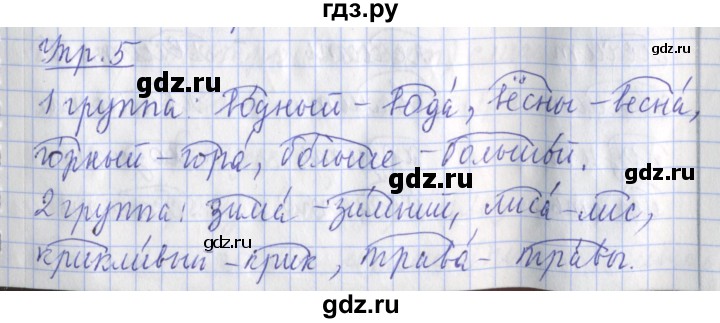 гдз.ру
Упр. 5
gdz.ru gdz.ru
1 группа: водный – вода́, вёсны – весна́,
го́рный – гора́, бо́льше – большо́й.
gdz.ru gdz.ru
2 группа: зима́ – зи́мний, лиса́ – лис,
gdz.ru
крикли́вый – крик, трава́ – тра́вы.
gdz.ru gdz.ru
gdz.ru